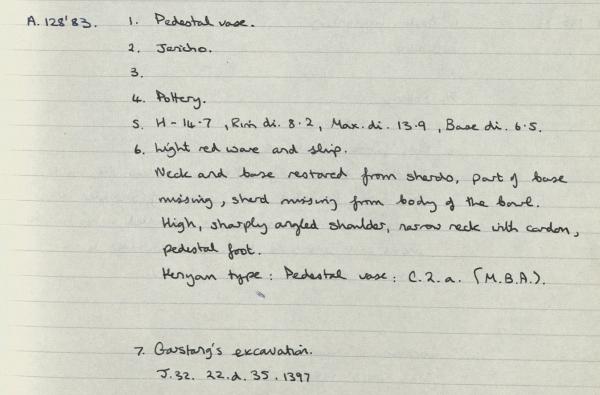 A.128'83. 1. Pedestal vase.
2. Jericho.
3.
4. Pottery.
5. H - 14.7, Rim di. 8.2, Max. di. 13.9, Base di. 6.5.
6. Light red ware and slip.
Neck and base restored from sherds, part of base
missing, sherd missing from body of the bowl.
High, sharply angled shoulder, narrow neck with cordon,
pedestal foot.
Kenyan type: Pedestal vase: C.2.a. (M.B.A.).
7. Garstang's excavation.
J.32. 22.d. 35. 1397